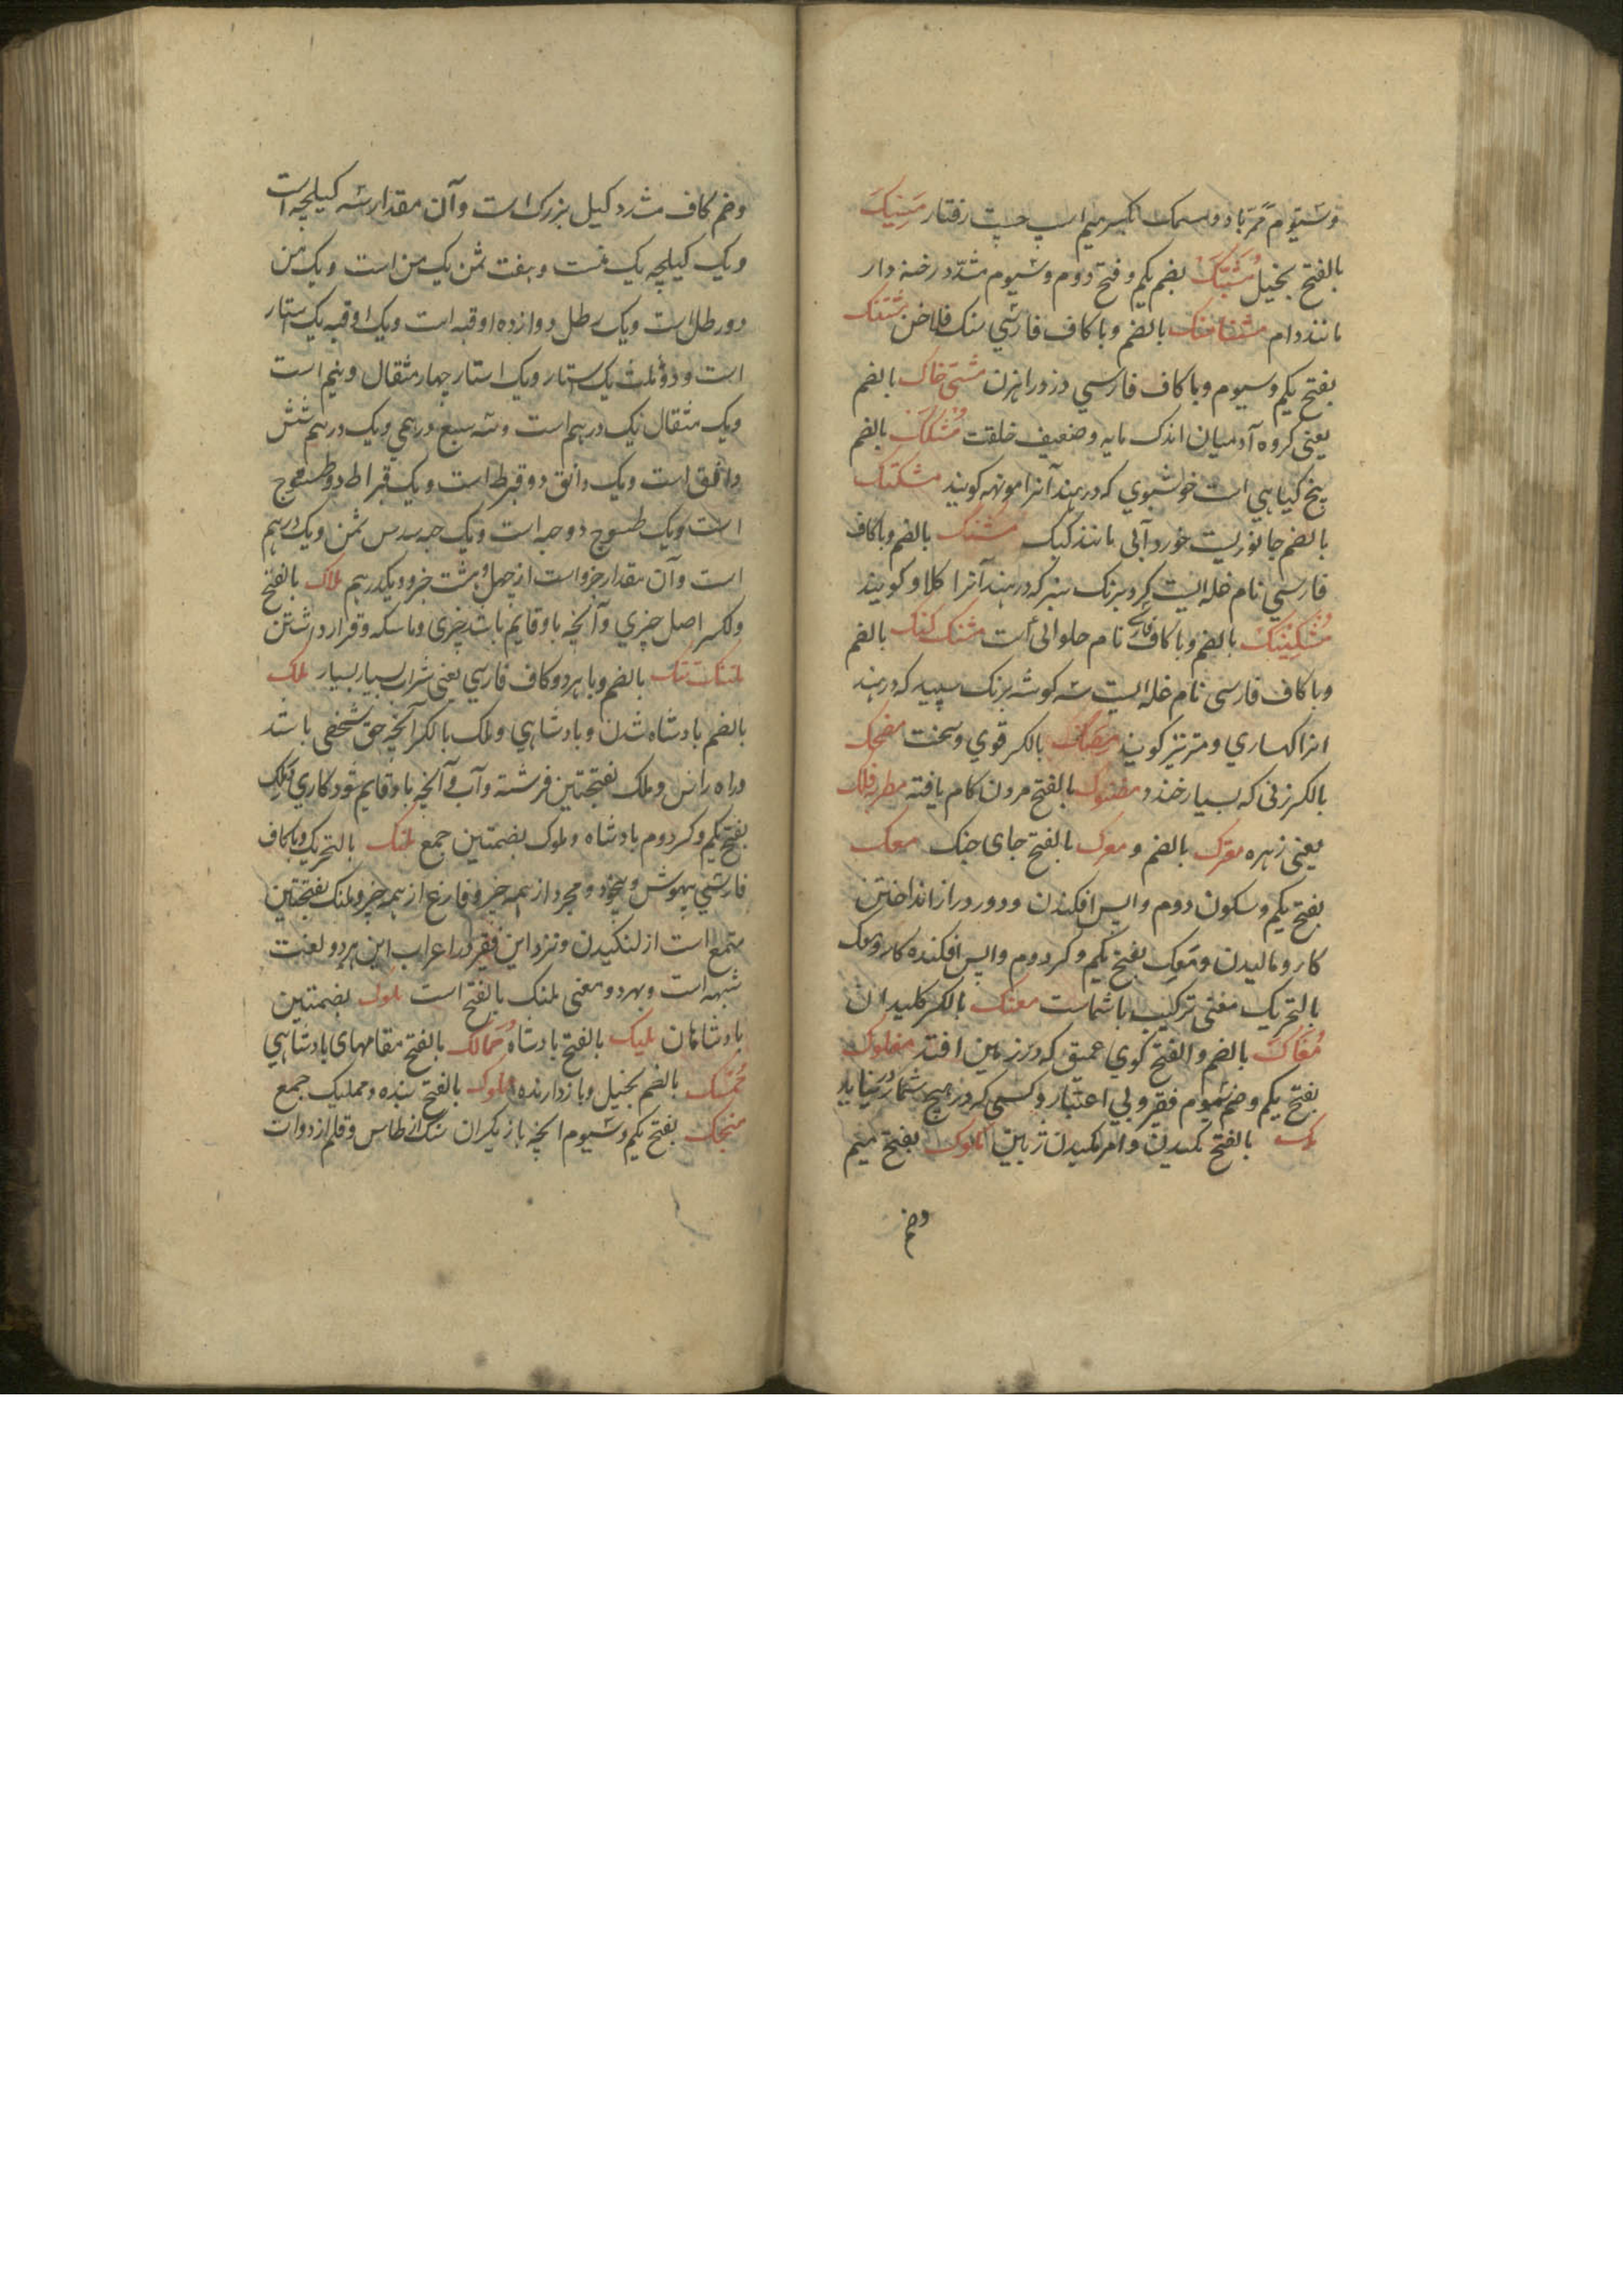 وسیوم ممر باد و مسک بکسر میم اسپ چست رفتار مسیک
بالفتح بخیل مشبک بضم یکم و فتح دوم و سیوم مشدد رخنه دار
مانند دام بالضم و با کاف فارسی سنک فلاخن
بفتح یکم و سیوم و با کاف فارسی دزد راهزن مشتی خاک بالضم
یعنی کروه آدمیان اندک مایه و ضعیف خلقت مشکک بالضم
بیخ کیاهی است خوشبوی که در هند آنرا موتهه کویند
بالضم جانوریست خورد آبی مانند کیک مشنک بالضم و با کاف
فارسی نام غله ایست کرد برنک سبز که در هند آنرا کلاو کویند
بالضم و با کاف فارسی نام حلوائی است بالضم
و با کاف فارسی نام غله ایست سه کوشه برنک سپید که در هند
انرا کساری و مترنیز کویند مصک بالکسر قوی و سخت مضحک
بالکسر زنی که بسیار خندد بالفتح مرون کام یافته مطربه فلک
یعنی زهره معرک بالضم و معرک بالفتح جای جنک معک
بفتح یکم و سکون دوم واپس افکندن و دور و دراز انداختن
کار و مالیدن و معک بفتح یکم و کسر دوم واپس افکنده کار و معک
بالتحریک معنی ترکیب باشماست معنک بالکسر کلیدان
مغاک بالضم و الفتح کوی عمیق که در زمین افتد مفلوک
بفتح یکم و ضم سیوم فقیر و بی اعتبار و کسی که در هیچ شمار در نیاید
مک بالفتح مکیدن و امر مکیدن زبین مکوک بفتح میم
وضم
وضم کاف مشدد کیل بزرک است و آن مقدار سه کیلچه است
و یک کیلچه یک منست و هفت ثمن یک من است و یک من
دو رطل است و یک رطل دوازده اوقیه است و یک اوقیه یک استار
است و دو ثلث یک استار و یک استار چهار مثقال و نیم است
و یک مثقال یک درهم است و سه سبع درهمی و یک درهم شش
دانق است و یک دانق دو قیراط است و یک قیراط دو طسوج
است و یک طسوج دو حبه است و یک حبه سدس ثمن و یک درهم
است و آن مقدار جزو است از چهل و هشت جزو و یکدرهم ملاک بالفتح
و الکسر اصل چیزی و آنچه باو قایم باشد چیزی و ماسکه و قرار داشتن
بالضم و با هر دو کاف فارسی یعنی شراب بسیار بسیار ملک
بالضم بادشاه شدن و بادشاهی و ملک بالکسر آنچه حق شخصی باشد
و راه راس و ملک بفتحتین فرشته و آب و آنچه باو قایم شود کاری و ملک
بفتح یکم و کسر دوم بادشاه و ملوک بضمتین جمع ملنک بالتحریک و با کاف
فارسی بیهوش و بیخود و مجرد از همه چیز و فارغ از همه چیز و ملنک بفتحتین
متمع است از لنکیدن و نزد این فقیر در اعراب این هر دو لغت
شبهه است و بهر دو معنی ملنک بالفتح است ملوک بضمتین
بادشاهان ملیک بالفتح بادشاه ممالک بالفتح مقامهای بادشاهی
ممسک بالضم بخیل و بازدارنده مملوک بالفتح بنده و ممالیک جمع
منجک بفتح یکم و سیوم انچه بازیکران سنک از طاس و قلم از دوات